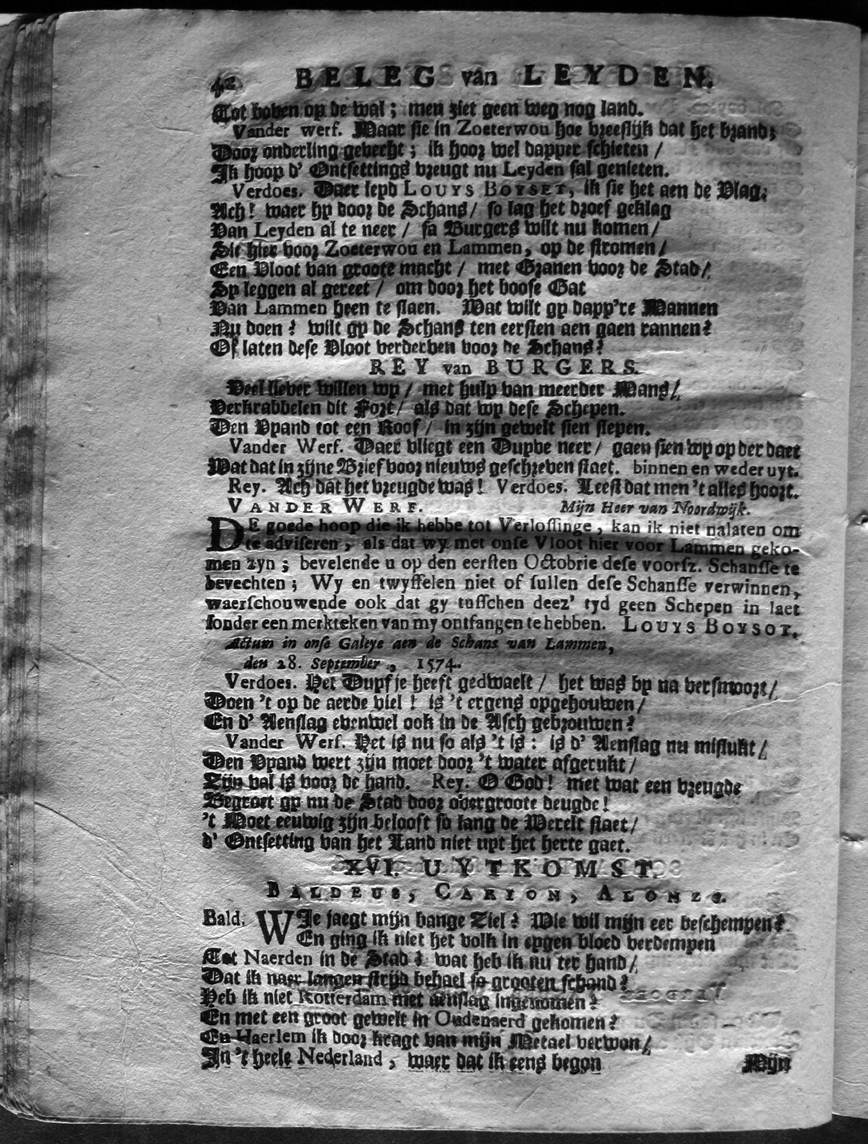 42 BELEG van LEYDEN.
Tot boven op de wal ; men ziet geen weg nog land.
Vander werf. Maar sie in Zoeterwou hoe vreeslijk dat het brand;
Door onderling gevecht ; ik hoor wel dapper schieten /
Ik hoop d' Ontsettings vreugt nu Leyden sal genieten.
Verdoes. Daer leyd LOUYS BOYSET, ik sie het aen de Vlag;
Ach! waer hy door de Schans / so lag het droef geklag
Van Leyden al te neer / sa Burgers wilt nu komen /
Sit hier voor Zoeterwou en Lammen, op de stromen /
Een Vloot van groote macht / met Granen voor de Stad /
Sy leggen al gereet / om door het boose Gat
Van Lammen heen te slaen. Wat wilt gy dapp're Mannen
Nu doen? wilt gy de Schans ten eersten aen gaen rannen?
Of laten dese Vloot verderven voor de Schans?
REY van BURGERS.
Veel liever willen wy / met hulp van meerder Mans /
Verkrabbelen dit Fort / als dat wy dese Schepen.
Den Vyand tot een Roof / in zijn gewelt sien slepen.
Vander Werf. Daer vliegt een Duyve neer / gaen sien wy op der daet
Wat dat in zijne Brief voor nieuws geschreven staet. binnen en weder uyt.
Rey. Ach dat het vreugde was! Verdoes. Leest dat men 't alles hoort.
VANDER WERF. Mijn Heer van Noordwijk.
DE goede hoop die ik hebbe tot Verlossinge, kan ik niet nalaten om
te adviseren, als dat wy met onse Vloot hier voor Lammen geko-
men zyn ; bevelende u op den eersten Octobrie dese voorsz. Schansse te
bevechten ; Wy en twyffelen niet of sullen dese Schansse verwinnen,
waerschouwende ook dat gy tusschen deez' tyd geen Schepen in laet
sonder een merkteken van my ontfangen te hebben. LOUYS BOYSOT.
Actum in onse Galeye aen de Schans van Lammen,
den 28. September, 1574.
Verdoes. Het Duyfje heeft gedwaelt / het was by na versmoort /
Doen 't op de aerde viel! is 't ergens opgehouwen /
En d' Aenslag evenwel ook in de Asch gebrouwen?
Vander Werf. Het is nu so als 't is : is d' Aenslag nu mislukt /
Den Vyand wert zijn moet door 't water afgerukt /
Zijn val is voor de hand. Rey. O God! met wat een vreugde
Begroet gy nu de Stad door overgroote deugde!
't Moet eeuwig zijn belooft so lang de Werelt staet /
d' Ontsetting van het Land niet uyt het herte gaet.
XVI. UYTKOMST.
BALDEUS, CARION, ALONZO.
Bald. WIe jaegt mijn bange Ziel? Wie wil mijn eer beschempen?
En ging ik niet het volk in eygen bloed verdempen
Tot Naerden in de Stad? wat heb ik nu ter hand /
Dat ik naer langen strijd behael so grooten schand?
Heb ik niet Rotterdam met aenslag ingenomen?
En met een groot gewelt in Oudenaerd gekomen?
En Haerlem ik door kragt van mijn Metael verwon /
In 't heele Nederland, waer dat ik eens begon
Mijn